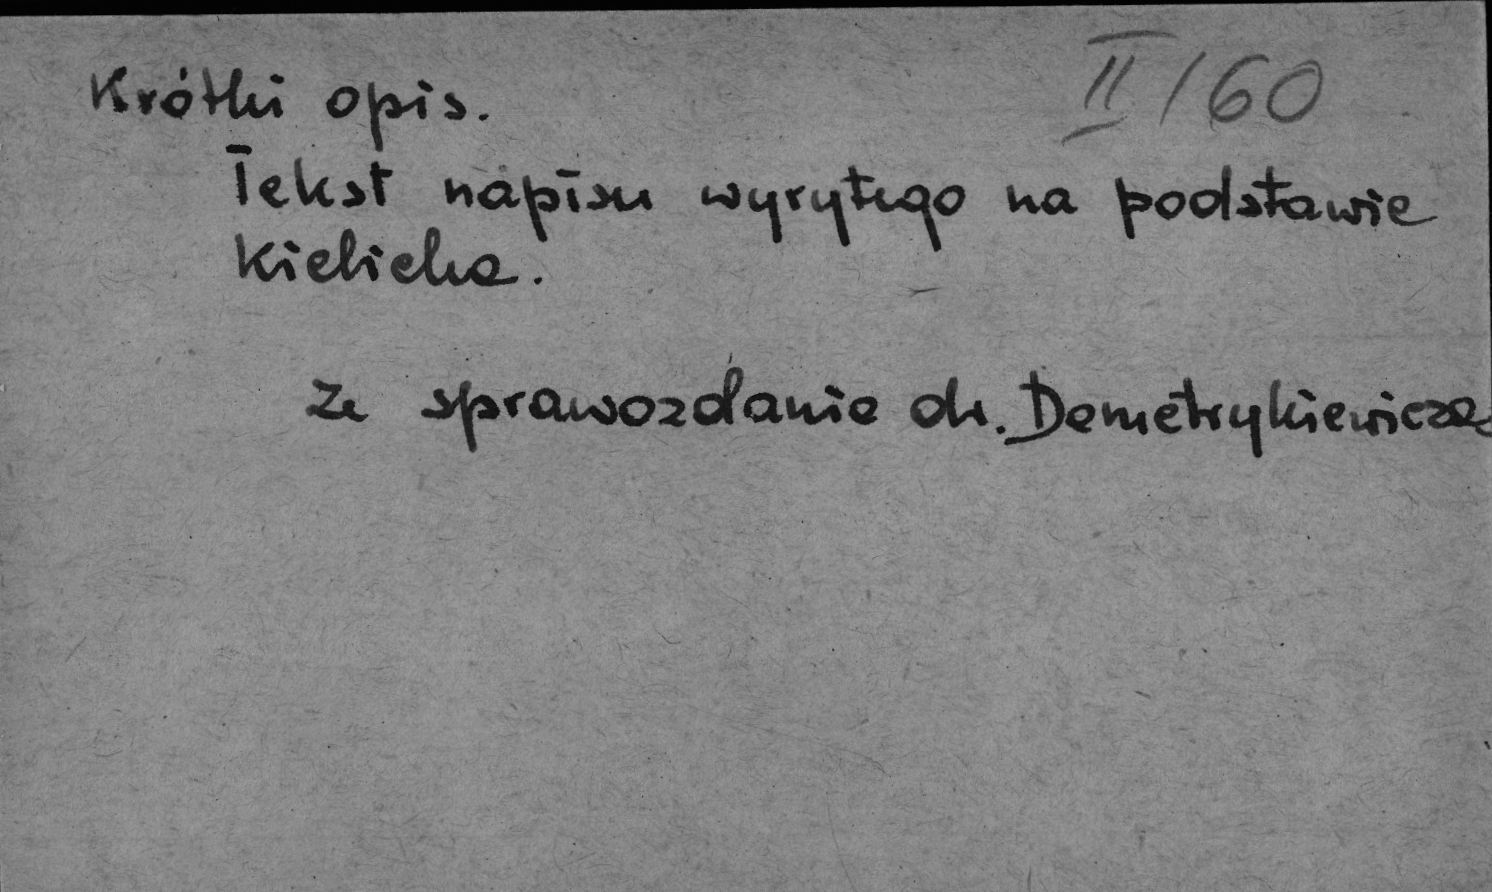 Krótki opis.
II/60
Tekst napisu wyrytego na podstawie
Kielicha.
Ze sprawozdania dr. Demetrykiewicza